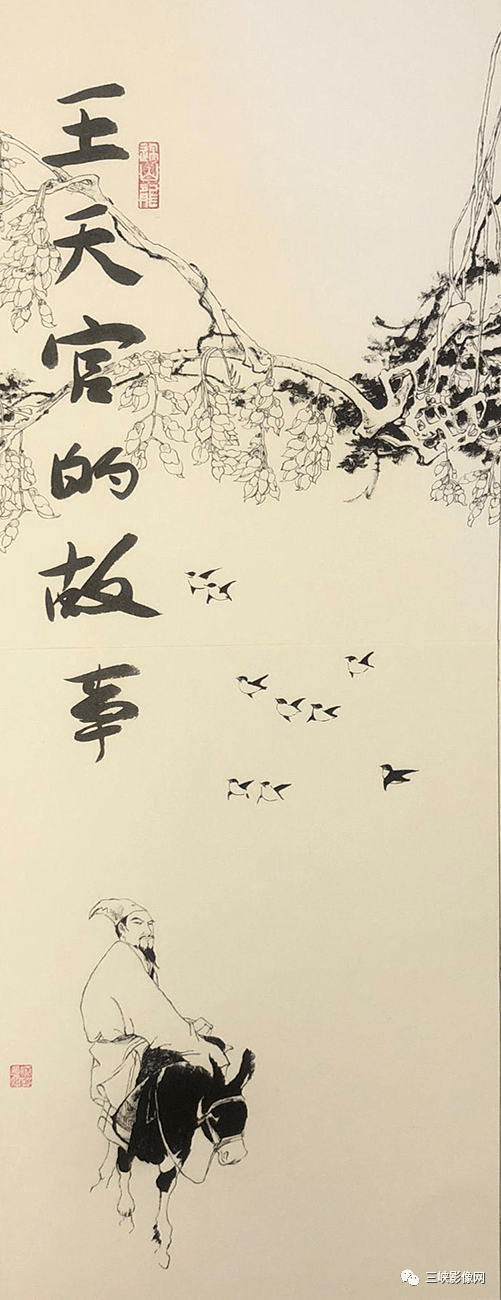 王天官的故事
三峡影像网